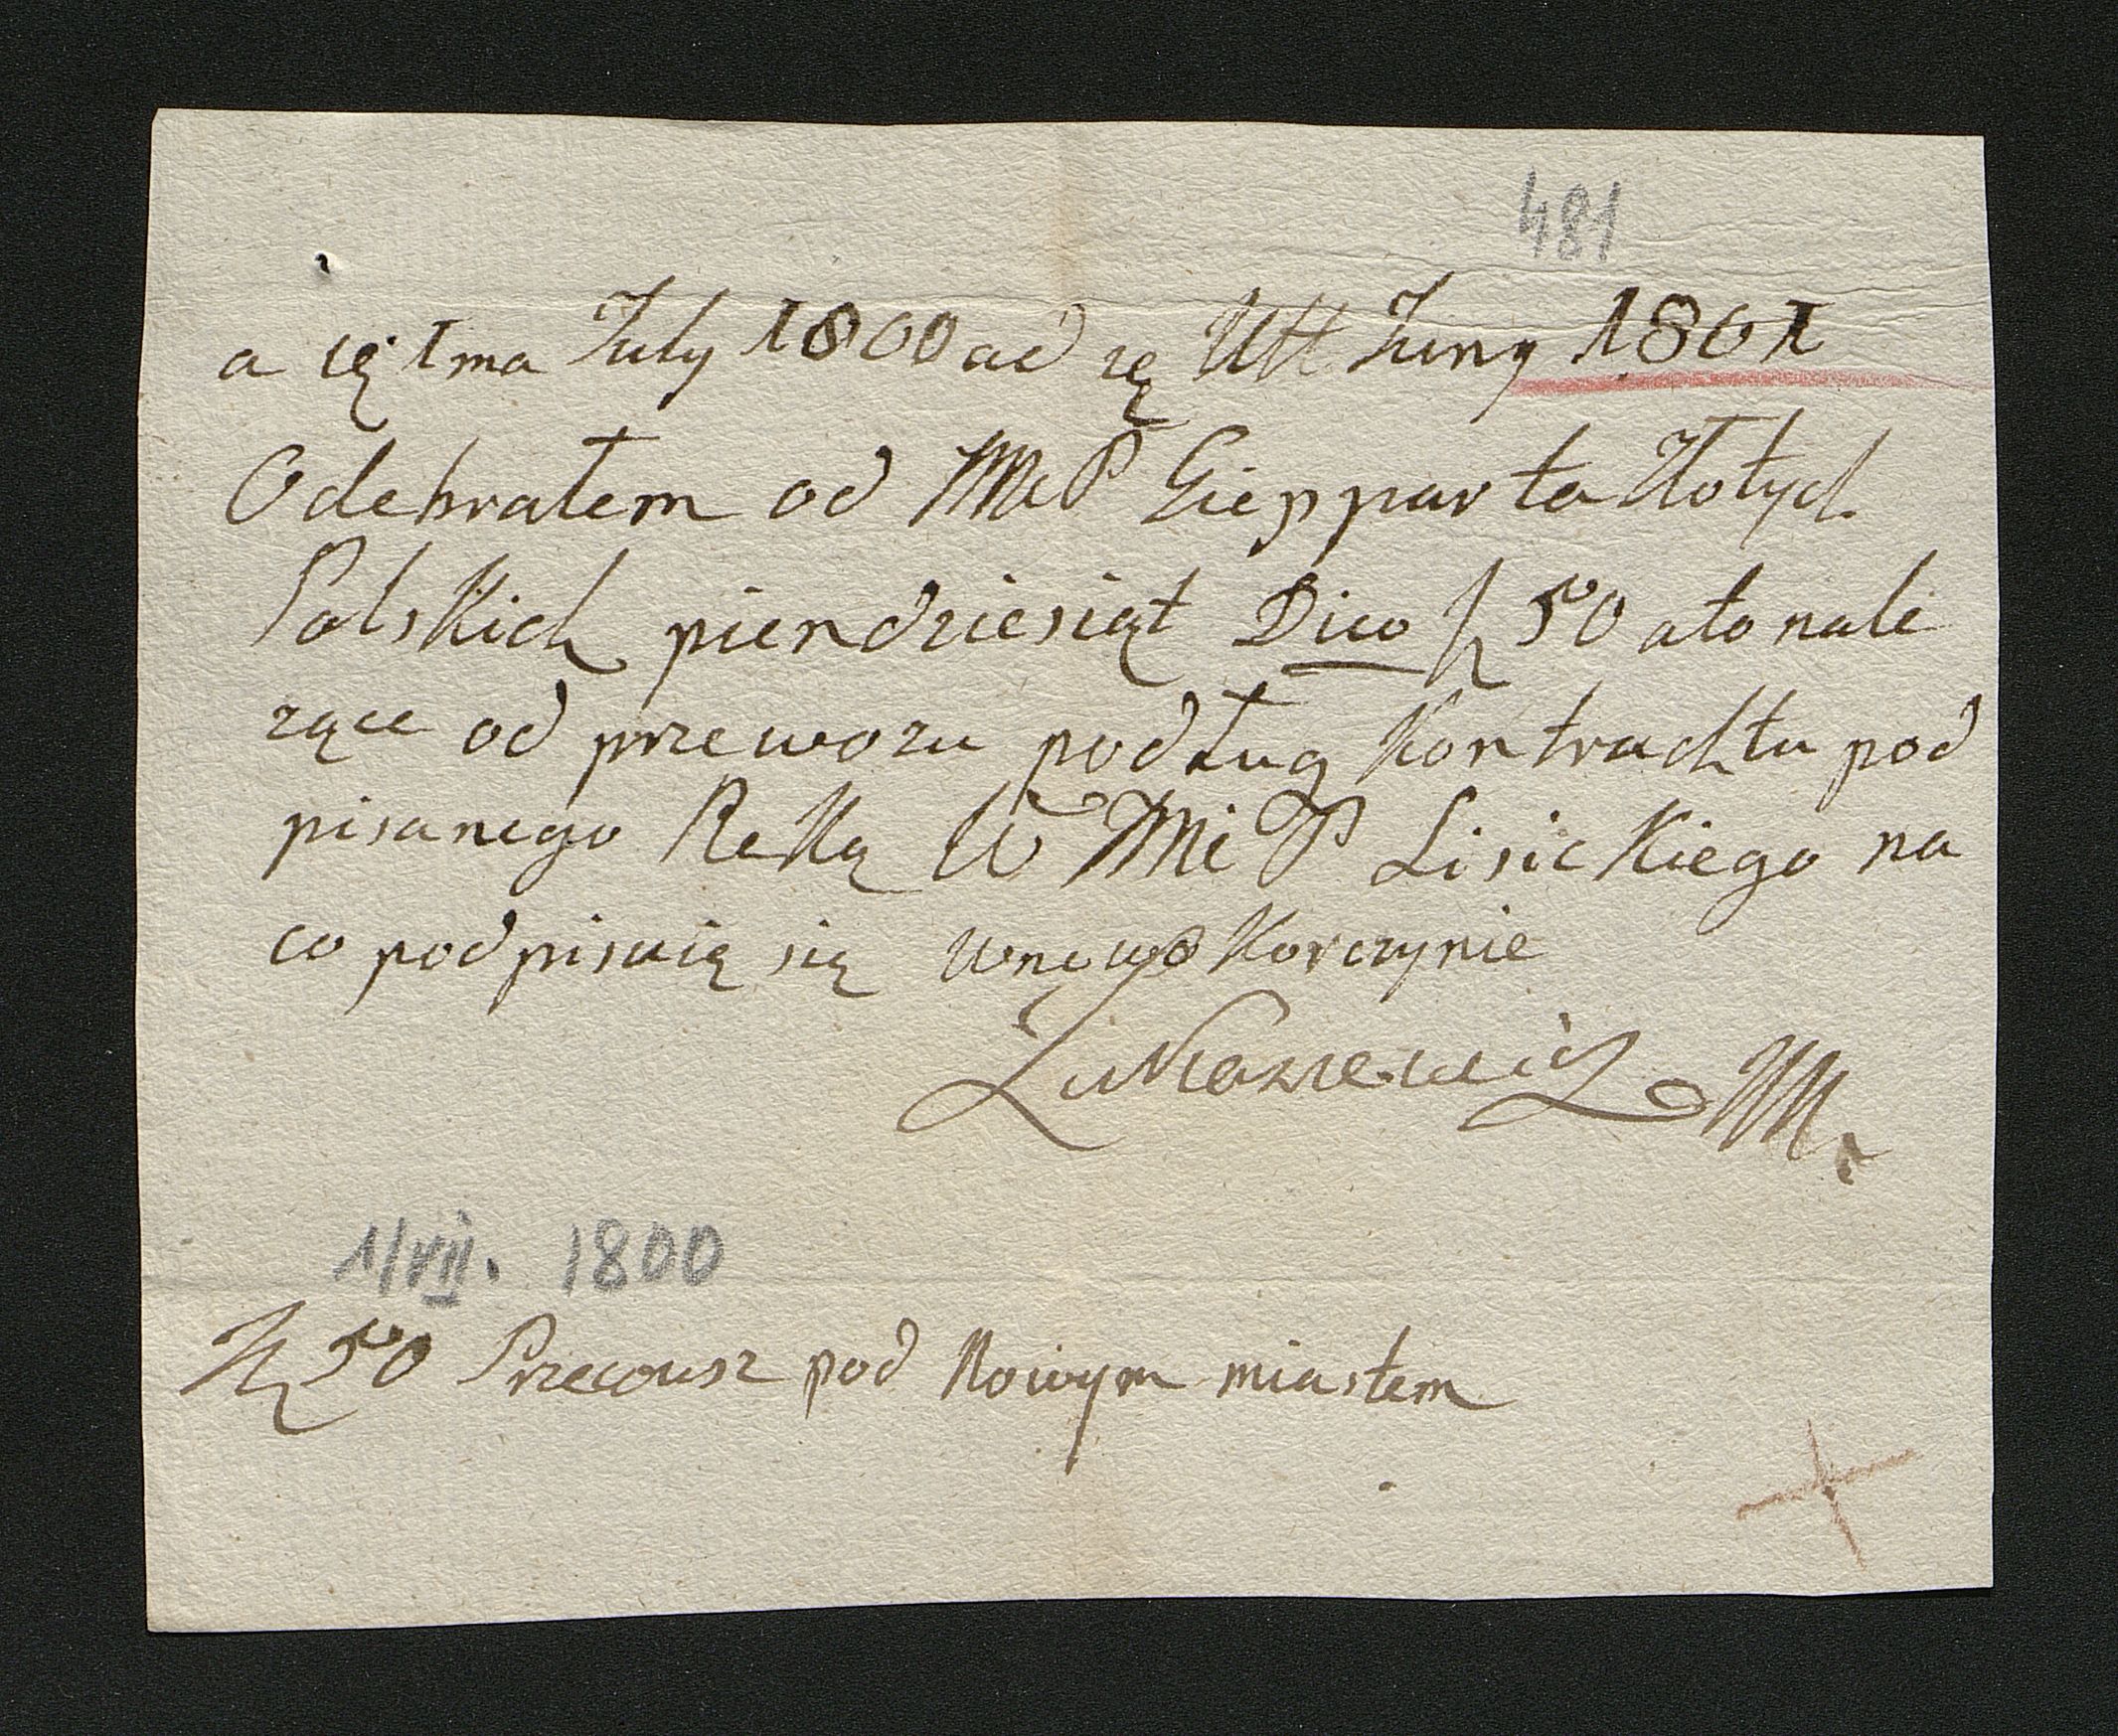 481
a 1ma July 1800 ad Ult Juny 1801
Odebrałem od JMP Giepparta Złotych
Polskich piendziesiąt Dico 50 ato nale
rzące od przewozu podług Kontrachtu pod
pisanego Reką W JMci P Lisickiego na
co podpisuię się wnowo Korczynie
Łukaszewicz
1/VII. 1800
50 Przewusz pod Nowym miastem